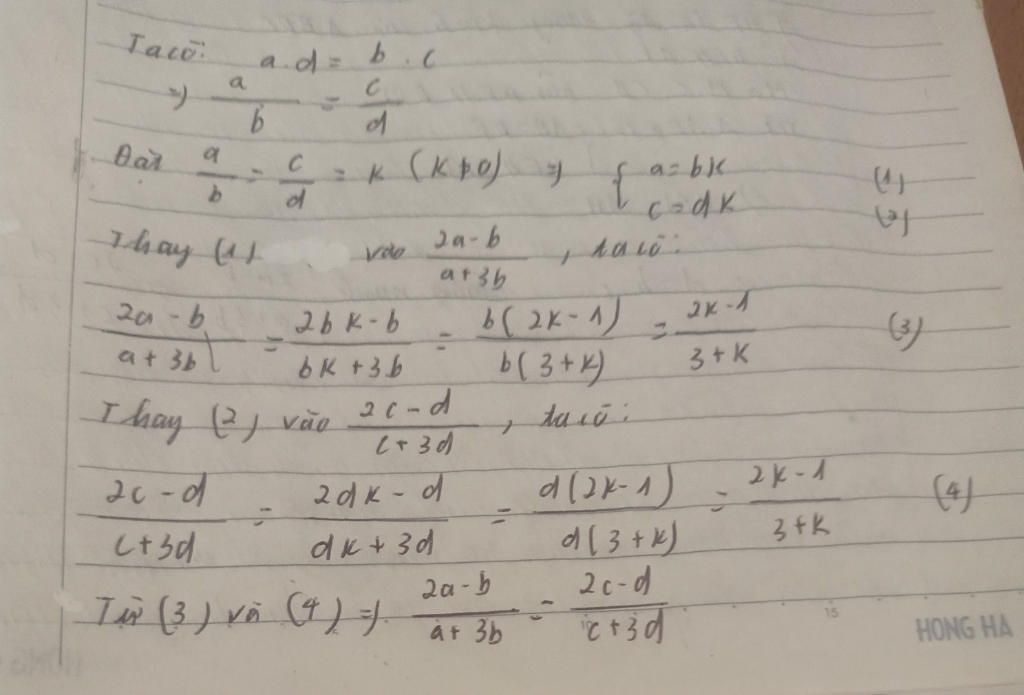 Ta có: a.d = b.c
=> a/b = c/d
Đặt a/b = c/d = k (k≠0) => { a = bk (1)
c = dk (2)
Thay (1) vào (2a-b)/(a+3b), ta có:
(2a-b)/(a+3b) = (2bk-b)/(bk+3b) = b(2k-1)/b(3+k) = (2k-1)/(3+k) (3)
Thay (2) vào (2c-d)/(c+3d), ta có:
(2c-d)/(c+3d) = (2dk-d)/(dk+3d) = d(2k-1)/d(3+k) = (2k-1)/(3+k) (4)
Từ (3) và (4) => (2a-b)/(a+3b) = (2c-d)/(c+3d)
15
HONG HA